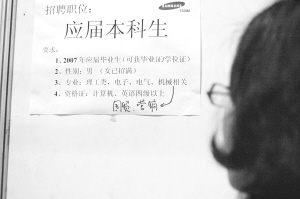 招聘职位：
SAMSUNG
应届本科生
要求：
1. 2007年应届毕业生（可获毕业证/学位证）
2、性别：男 （女已招满）
3、专业：理工类、电子、电气、机械相关
4、资格证：计算机、英语四级以上
国贸、营销